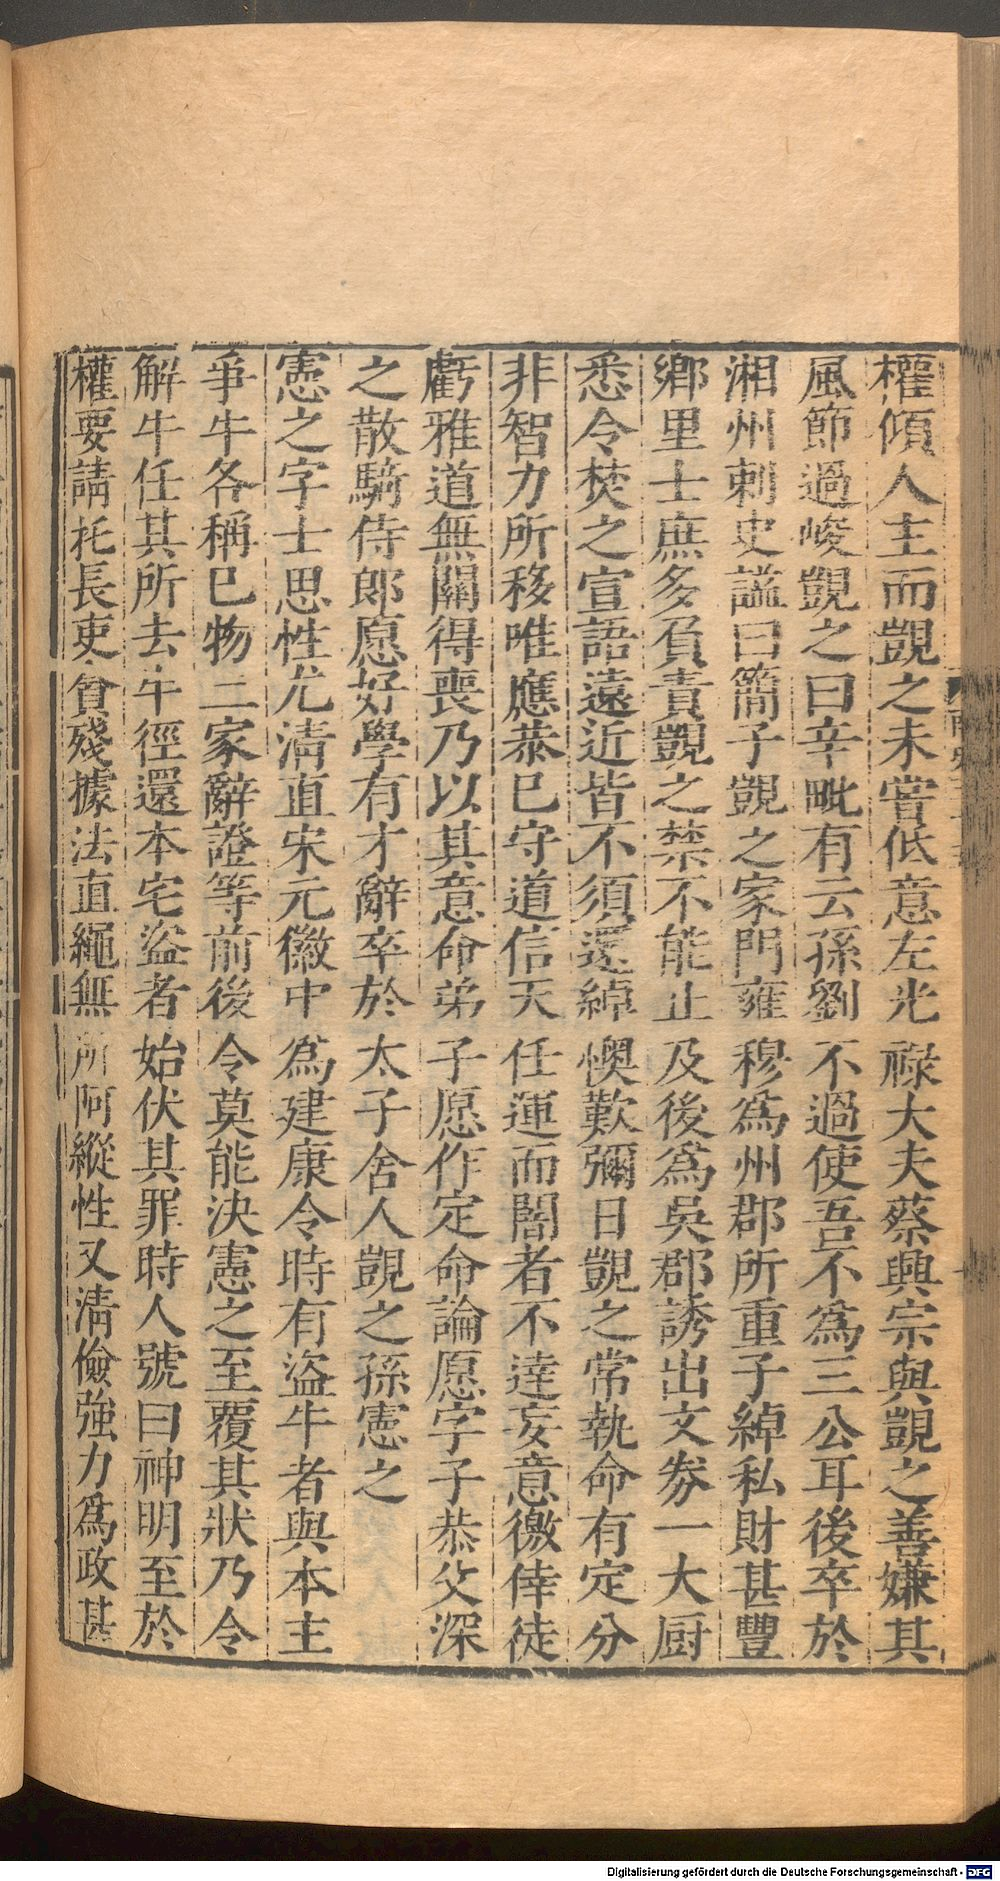 權傾人主而覬之未嘗低意左光祿大夫蔡興宗與覬之善嫌其
風節過峻覬之曰辛毗有云孫劉不過使吾不為三公耳後卒於
湘州刺史謚曰簡子覬之家門雍穆為州郡所重子綽私財甚豐
鄉里士庶多負責覬之禁不能止及後為吳郡誘出文券一大厨
悉令焚之宣語遠近皆不須還綽懊歎彌日覬之常執命有定分
非智力所移唯應恭巳守道信天任運而闇者不達妄意徼倖徒
虧雅道無關得喪乃以其意命弟子愿作定命論愿字子恭父深
之散騎侍郎愿好學有才辭卒於太子舍人覬之孫憲之
憲之字士思性尤清直宋元徽中為建康令時有盜牛者與本主
爭牛各稱巳物二家辭證等前後令莫能決憲之至覆其狀乃令
解牛任其所去牛徑還本宅盜者始伏其罪時人號曰神明至於
權要請托長吏貪殘據法直繩無所阿縱性又清儉強力為政甚
Digitalisierung gefördert durch die Deutsche Forschungsgemeinschaft - DFG